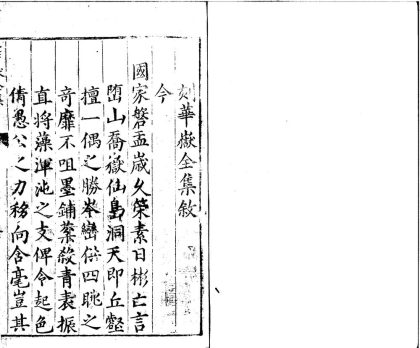 刻華嶽全集敘
今
國家磐盂歲久榮素日彬亡言
嵒山喬嶽仙島洞天即丘壑
擅一偶之勝岑巒供四眺之
奇靡不咀墨鋪蘂殺青裒振
直将藻渾沌之支俾令起色
倩愚公之力移向含毫豈其